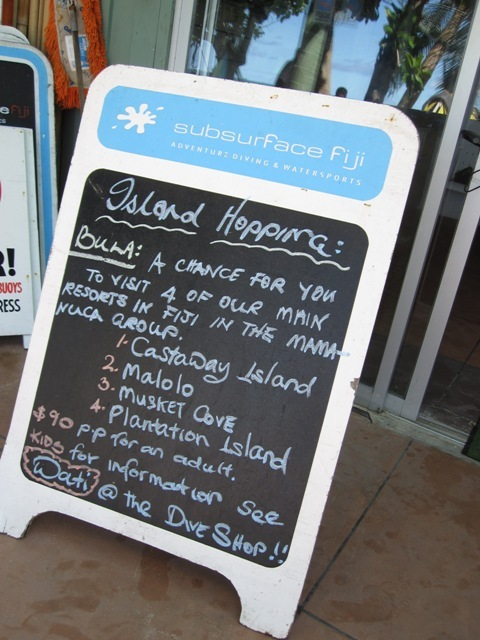 subsurface fiji
ADVENTURE DIVING & WATERSPORTS
Island Hopping:
BULA: A CHANCE FOR YOU
TO VISIT 4 OF OUR MAIN
RESORTS IN FIJI IN THE MAMA-
NUCA GROUP.
1. Castaway Island
2. Malolo
3. MUSKET COVE
4. Plantation Island
$90 p/p for an adult.
KIDS for information see
@ the DIVE SHOP!!
fiji
R!
BUOYS
RESS